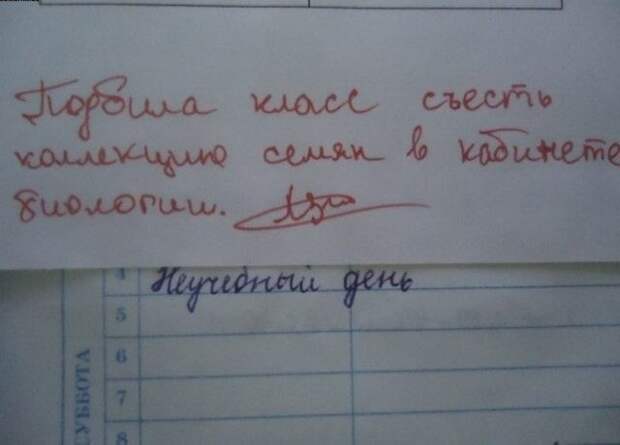 Подбила класс съесть
коллекцию семян в кабинете
биологии.
4 Неучебный день
5
6
7
8
СУББОТА